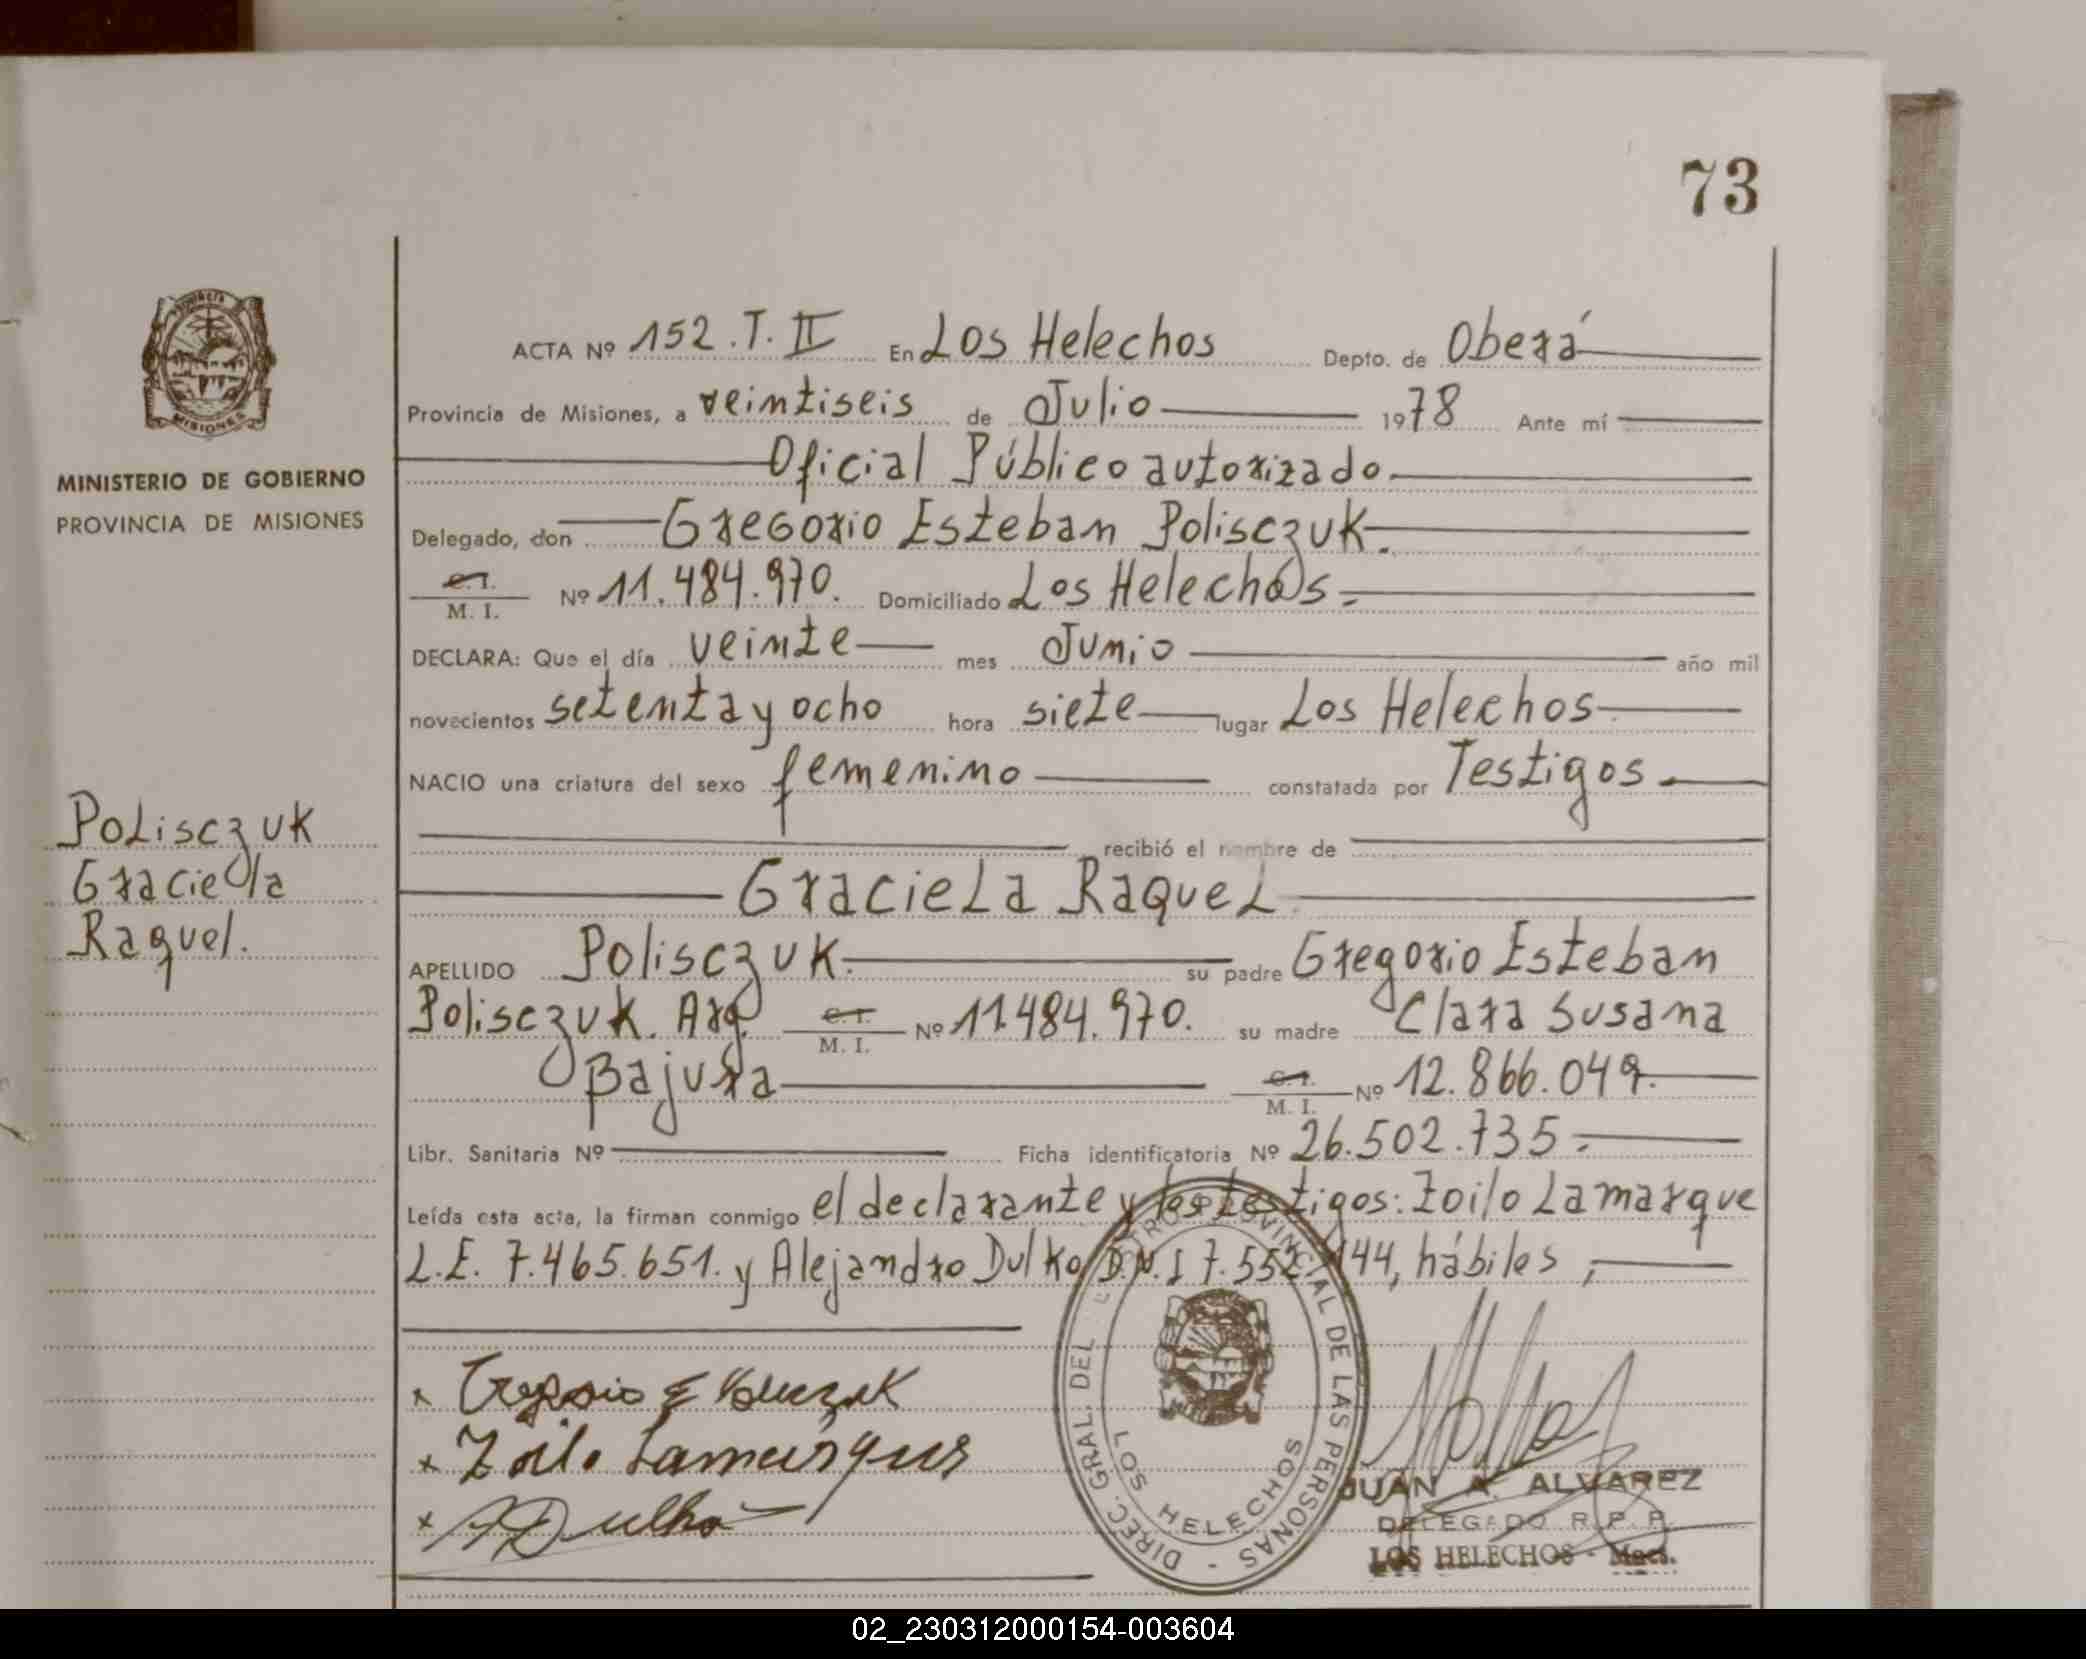 73
ACTA Nº 152.T.II En Los Helechos Depto. de Oberá
Provincia de Misiones, a veintiseis de Julio 1978 Ante mí
Oficial Público autorizado
MINISTERIO DE GOBIERNO
PROVINCIA DE MISIONES
MISIONES
Delegado, don Gregorio Esteban Polisczuk.
C.I.
M. I. Nº 11.484.970. Domiciliado Los Helechos.
DECLARA: Que el día veinte mes Junio año mil
novecientos setenta y ocho hora siete lugar Los Helechos
NACIO una criatura del sexo femenino constatada por Testigos
recibió el nombre de
Polisczuk
Graciela
Raquel.
Graciela Raquel
APELLIDO Polisczuk. su padre Gregorio Esteban
Polisczuk. Arg. C.I. M. I. Nº 11.484.970. su madre Clara Susana
Bajura C.I. M. I. Nº 12.866.049.
Libr. Sanitaria Nº Ficha identificatoria Nº 26.502.735.
Leída esta acta, la firman conmigo el declarante y los testigos: Zoilo Lamarque
L.E. 7.465.651. y Alejandro Dulko D.N.I 7.552.144, hábiles,
x Gregorio E Polisczuk
x Zoilo Lamarque
x ADulko
DIREC. GRAL. DEL REGISTRO PROVINCIAL DE LAS PERSONAS -
LOS HELECHOS
JUAN A. ALVAREZ
DELEGADO R. P. P.
LOS HELECHOS - Mnes.
02_230312000154-003604